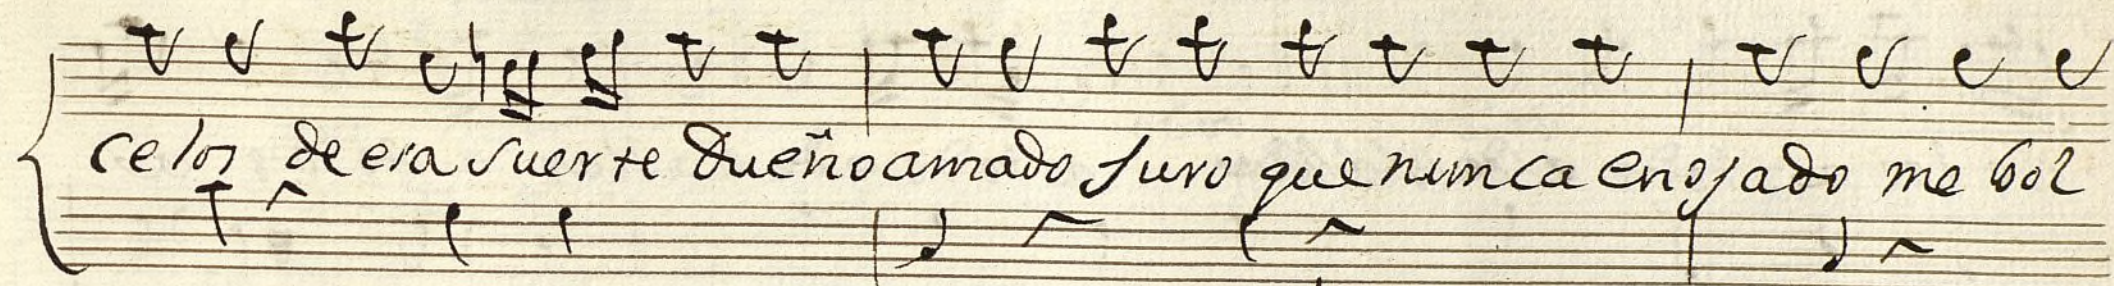 celos de esa suerte Dueño amado Juro que nunca enojado me bol